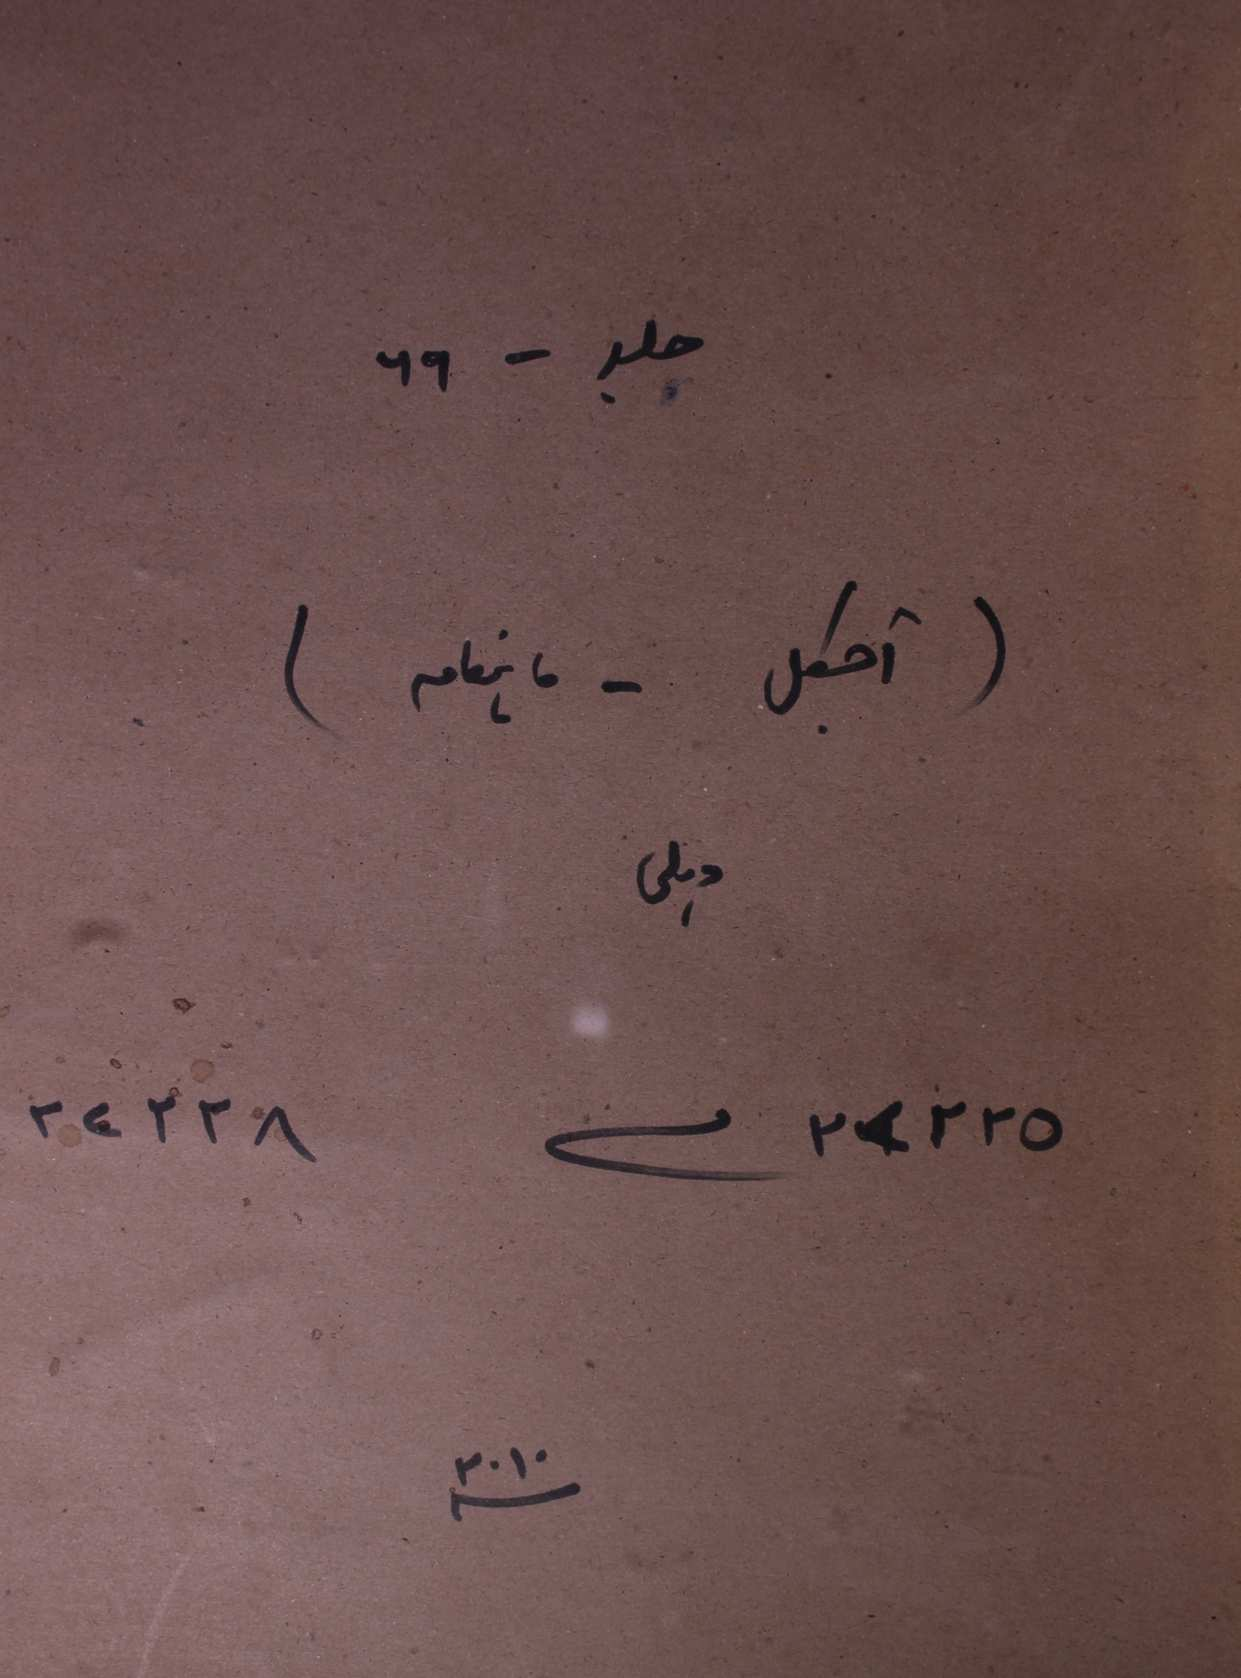 جلد - ۶۹
( آجکل - ماہنامہ )
دہلی
۲۷۲۲۵ سے ۲۷۲۳۸
۲۰۱۰